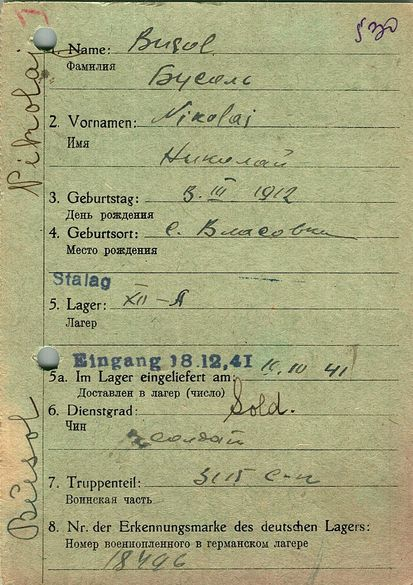 530
1. Name: Busol
Фамилия
Бусоль
2. Vornamen: Nikolaj
Имя
Николай
3. Geburtstag: 3. III 1912
День рождения
4. Geburtsort: с. Власовка
Место рождения
Stalag
5. Lager: XII-A
Лагерь
Eingang 18.12.41
5a. Im Lager eingeliefert am: 41
Доставлен в лагерь (число)
6. Dienstgrad: Sold.
Чин
солдат
7. Truppenteil:
Воинская часть
8. Nr. der Erkennungsmarke des deutschen Lagers:
Номер военнопленного в германском лагере
18496
Busol Nikolaj